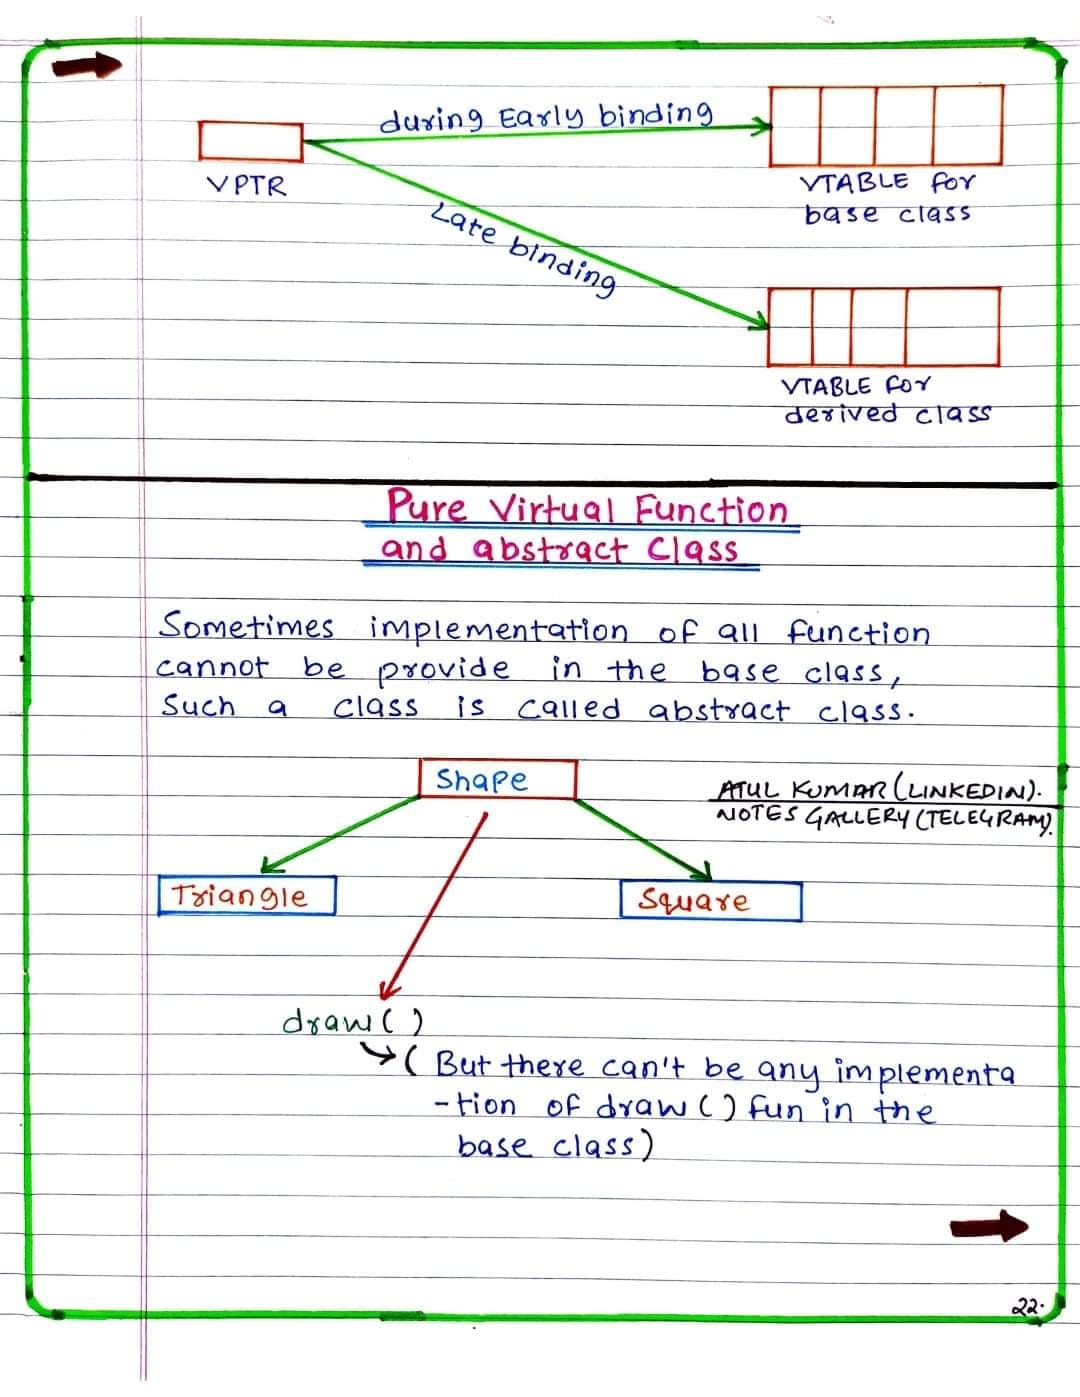 during Early binding
VPTR
VTABLE for
base class
Late binding
VTABLE for
derived class
Pure Virtual Function
and abstract Class
Sometimes implementation of all function
cannot be provide in the base class,
Such a class is called abstract class.
Shape
ATUL KUMAR (LINKEDIN).
NOTES GALLERY (TELEGRAM).
Triangle
Square
draw()
(But there can't be any implementa
-tion of draw() fun in the
base class)
22.